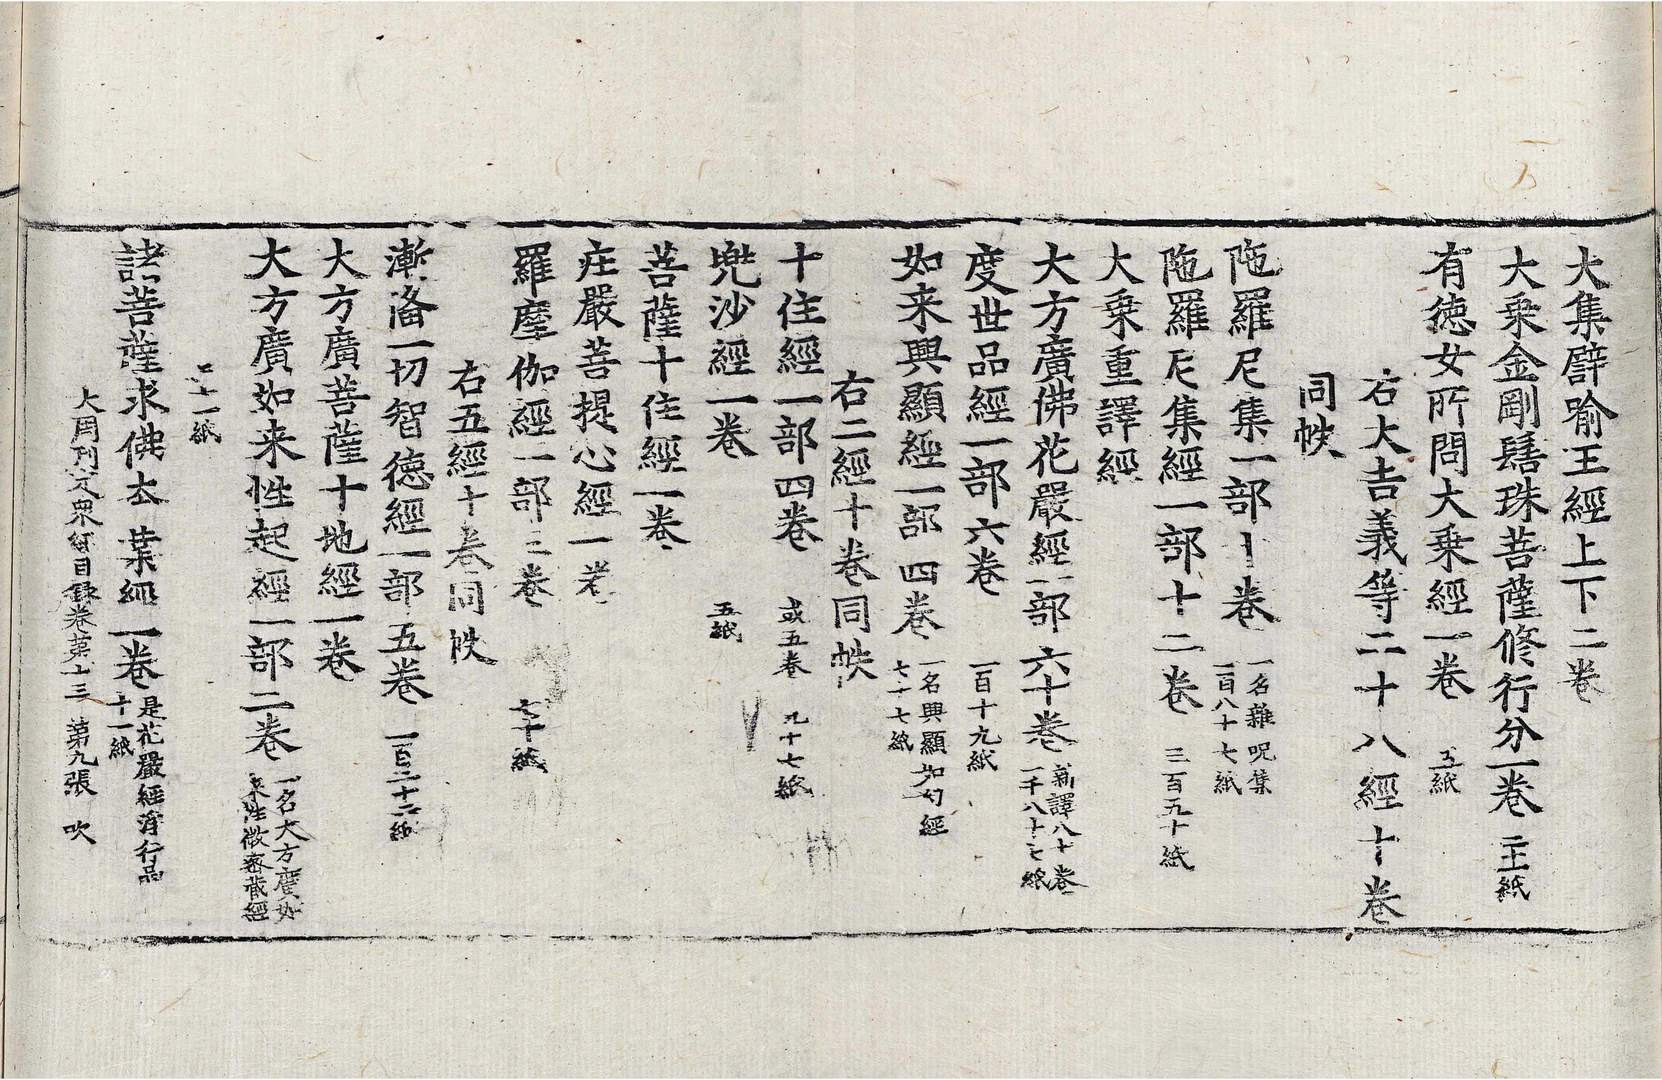 大集譬喻王經上下二卷
大乘金剛髻珠菩薩修行分一卷 二十紙
有德女所問大乘經一卷 五紙
右大吉義等二十八經十卷
同帙
陁羅尼集一部十卷 一名雜呪集 一百八十七紙
陁羅尼集經一部十二卷 三百五十紙
大乘重譯經
大方廣佛花嚴經一部六十卷 新譯八十卷 一千八十七紙
度世品經一部六卷 一百十九紙
如来興顯經一部四卷 一名興顯如幻經 七十七紙
右二經十卷同帙
十住經一部四卷 或五卷 九十七紙
兜沙經一卷 五紙
菩薩十住經一卷
庄嚴菩提心經一卷
羅摩伽經一部三卷 七十紙
右五經十卷同帙
漸俻一切智德經一部五卷 一百二十六紙
大方廣菩薩十地經一卷
大方廣如来性起經一部二卷 一名大方廣如来性微密藏經
三十一紙
諸菩薩求佛本葉經一卷 是花嚴經淨行品 十一紙
大周刊定衆經目錄卷第十三 第九張 吹